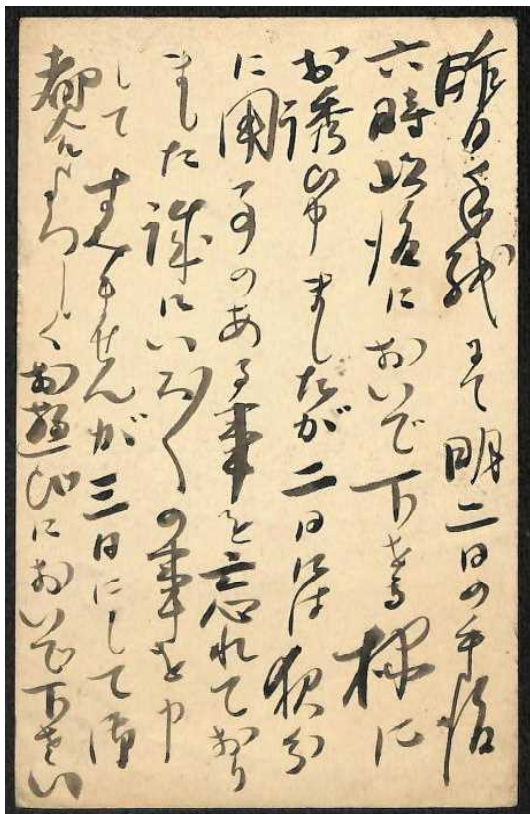 昨日手紙にて明二日の午後
六時頃に おいで下さる様に
お誘ひ申ましたが二日には夜分
に用事のある事を忘れており
ました 誠にいろ／＼の事を申
して すみませんが三日にして御
都合よろしくお遊びにおいで下さい